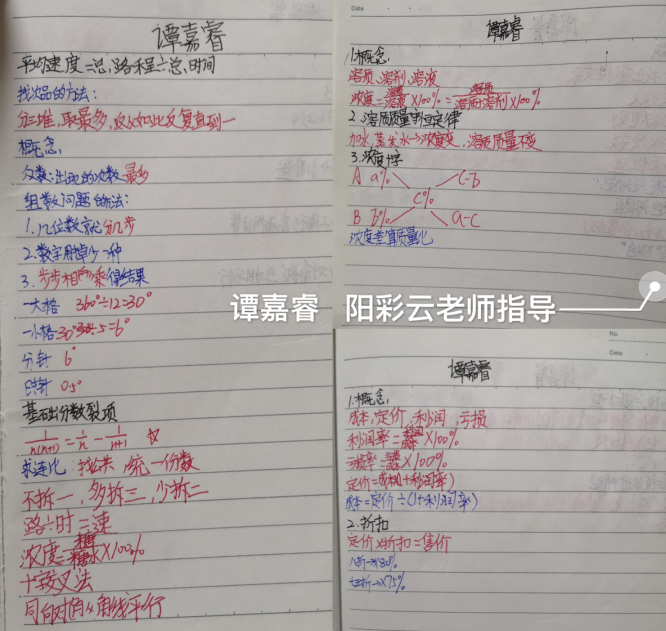 谭嘉睿
平均速度=总路程÷总时间
找次品的方法:
分三堆,取最多,如此反复直到一
概念,
众数:出现的次数最多
组数问题的方法:
1.几位数就分几步
2.数字用掉少一种
3.步步相乘得结果
一大格 360°÷12=30°
一小格30°÷5=6°
分针 6°
时针 0.5°
基础分数裂项
1/n(n+1)=1/n-1/n+1
求连比:找公共,统一份数
不拆一,多拆三,少拆二
路÷时=速
浓度=糖/糖水×100%
十字交叉法
同向对角线平行
谭嘉睿
1.概念,
溶质、溶剂、溶液
浓度=溶质/溶液×100%=溶质/溶质+溶剂×100%
2.溶质质量守恒定律
加水,蒸发水→浓度变,溶质质量不变
3.浓度十字
A a% c-b
c%
B b% a-c
浓度差算质量比
谭嘉睿 阳彩云老师指导
No.
Date
谭嘉睿
1.概念,
成本,定价,利润,亏损
利润率=利润/成本×100%
亏损率=×100%
定价=成本×(1+利润率)
成本=定价÷(1+利润率)
2.折扣
定价×折扣=售价
八折→×80%
七五折→×75%
Date